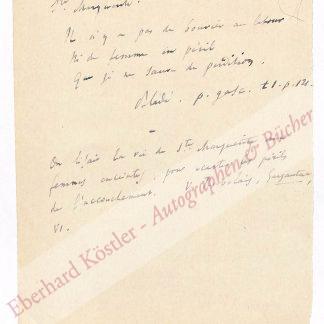 Ste Marguerite.
Il n'y a pas de bouvier au labour
Ni de femme en péril
Que je ne sauve de perdition.
p. gasc. t1. p. 121.
On lisait la vie de Ste Marguerite aux
femmes enceintes, pour écarter les périls
de l'accouchement. Rabelais, Gargantua,
VI.
Eberhard Köstler - Autographen & Bücher